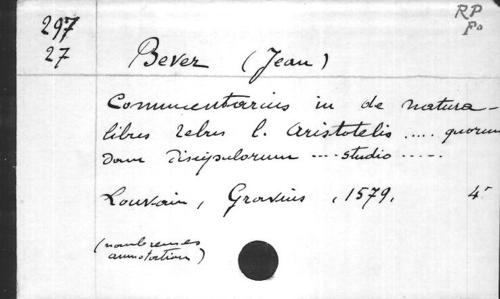 297
27
RP
Po
Bever (Jean)
Commentarius in de natura-
libus rebus l. Aristotelis ..... quorum
dam discipulorum .... studio .....
Louvain, Gravius, 1579, 4°
(nombreuses
annotation)